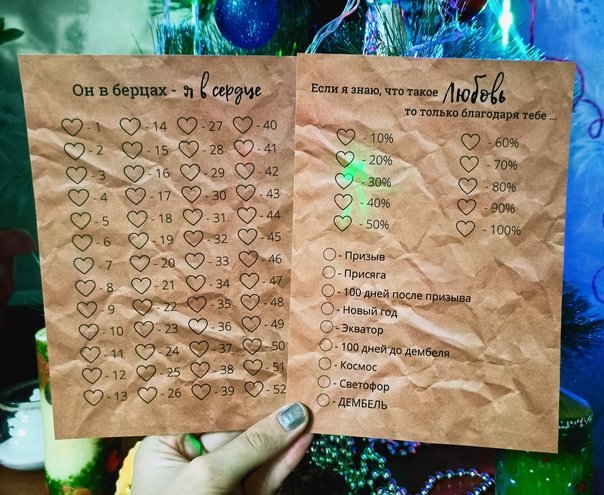 Он в берцах - я в сердце
- 1 - 14 - 27 - 40
- 2 - 15 - 28 - 41
- 3 - 16 - 29 - 42
- 4 - 17 - 30 - 43
- 5 - 18 - 31 - 44
- 6 - 19 - 32 - 45
- 7 - 20 - 33 - 46
- 8 - 21 - 34 - 47
- 9 - 22 - 35 - 48
- 10 - 23 - 36 - 49
- 11 - 24 - 37 - 50
- 12 - 25 - 38 - 51
- 13 - 26 - 39 - 52
Если я знаю, что такое Любовь
то только благодаря тебе ...
- 10% - 60%
- 20% - 70%
- 30% - 80%
- 40% - 90%
- 50% - 100%
- Призыв
- Присяга
- 100 дней после призыва
- Новый год
- Экватор
- 100 дней до дембеля
- Космос
- Светофор
- ДЕМБЕЛЬ